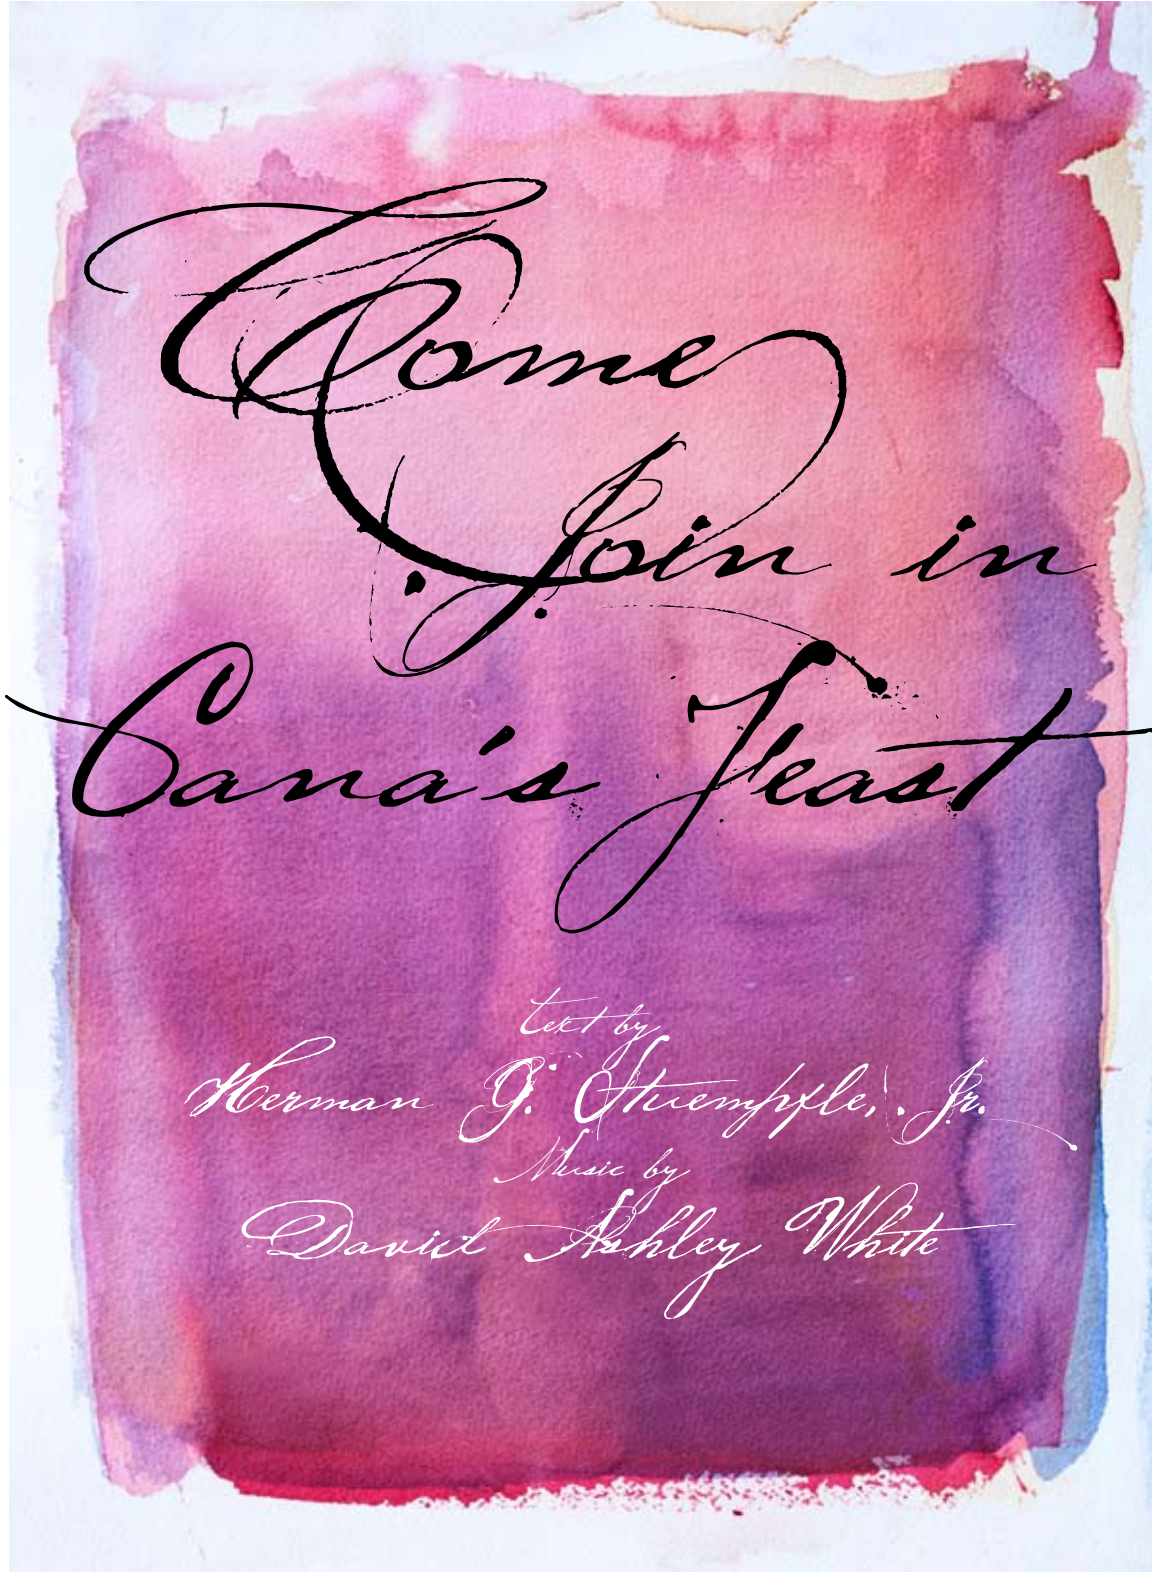 Come
Join in
Cana's Feast
text by
Herman G. Stuempfle, Jr.
Music by
David Ashley White